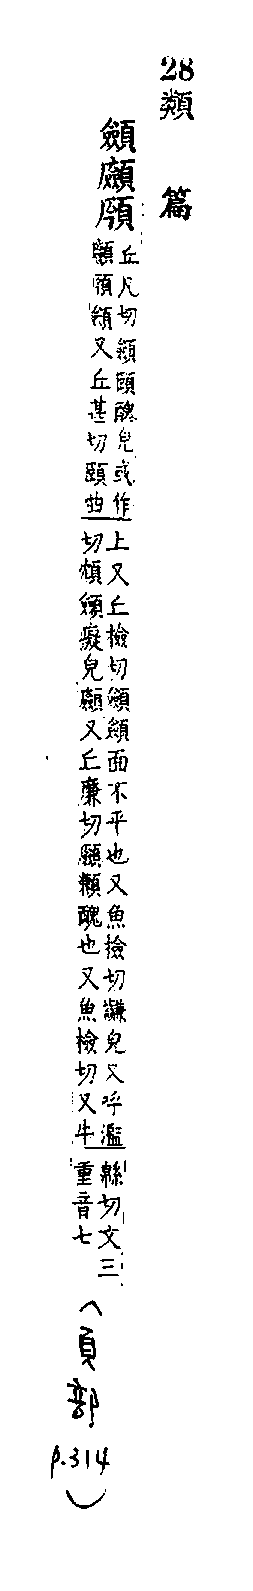 28類 篇
顩
丘凡切顩頤醜皃或作
又丘甚切頤曲
上又丘檢切顩顩面不平也又魚檢切謙皃又呼濫
切顩癡皃又丘廉切顩醜也又魚檢切又牛
緜切文三
重音七
(頁部
p.314)